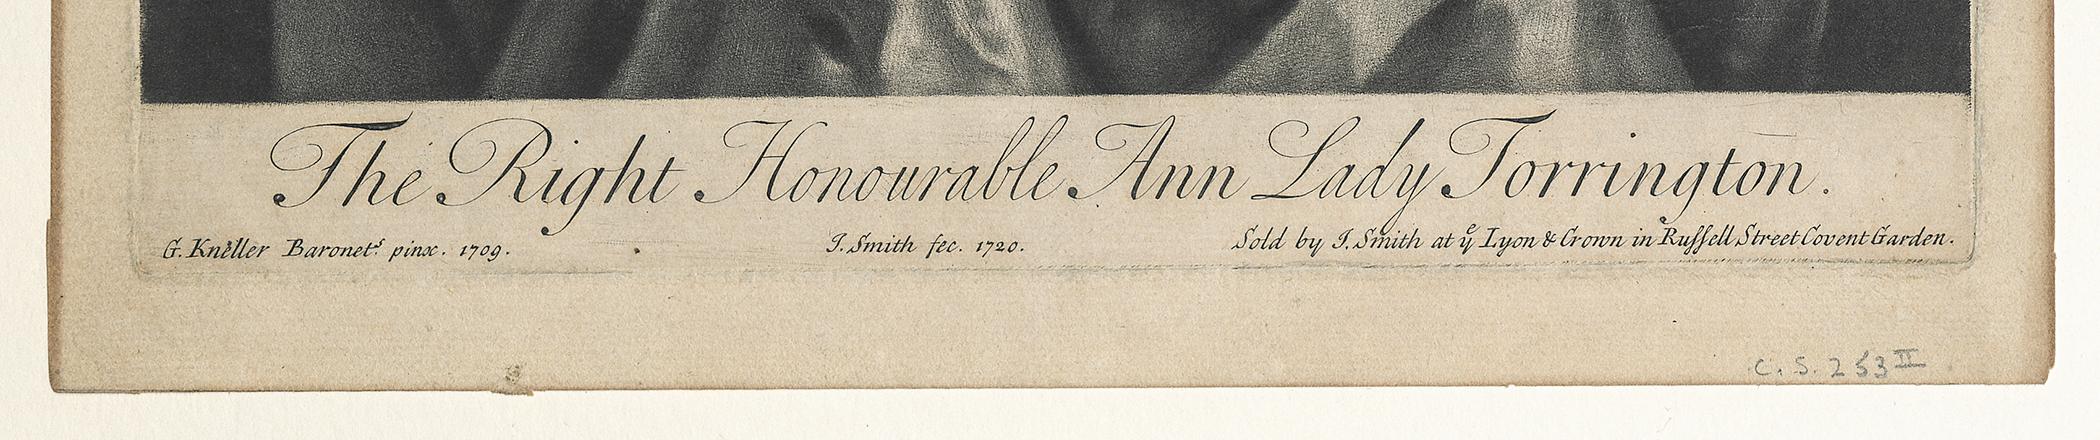 The Right Honourable Ann Lady Torrington.
G. Kneller Baronet.s pinx. 1709.
J. Smith fec. 1720.
Sold by J. Smith at ye Lyon & Crown in Russell Street Covent Garden.
C. S. 253 II